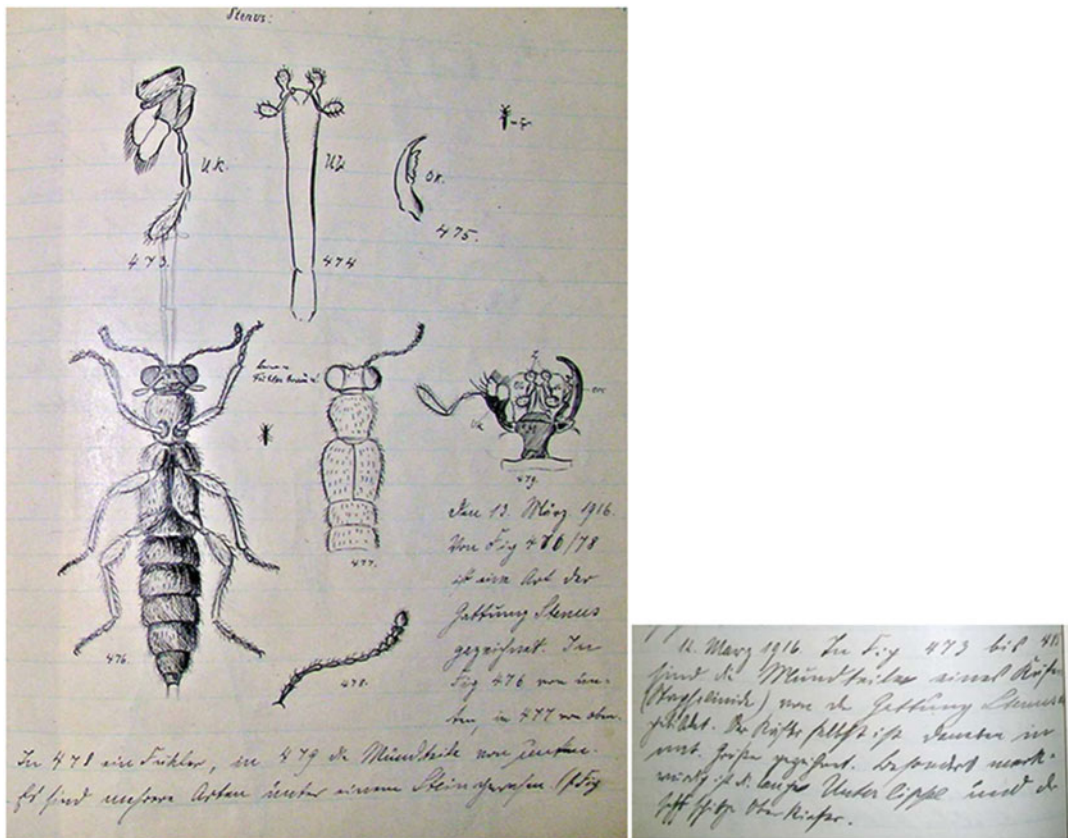 Stenus:
U.K.
UL
OK.
473.
474
475.
Fühler braun!
476.
477.
478.
479.
OK
UK
Den 13. März 1916.
Von Fig 476/78
ist eine Art der
Gattung Stenus
gezeichnet. In
Fig 476 von un-
ten, in 477 von oben.
In 478 ein Fühler, in 479 die Mundteile von unten.
Es sind mehrere Arten unter einem
12. März 1916. In Fig 473 bis
sind die Mundteile eines Käfers
(Staphelinide) von der Gattung Stenus
gebildet. Der Käfer selbst ist daneben in
nat. Größe gezeichnet. Besonders merk-
würdig ist d. lange Unterlippe und der
spitze Oberkiefer.